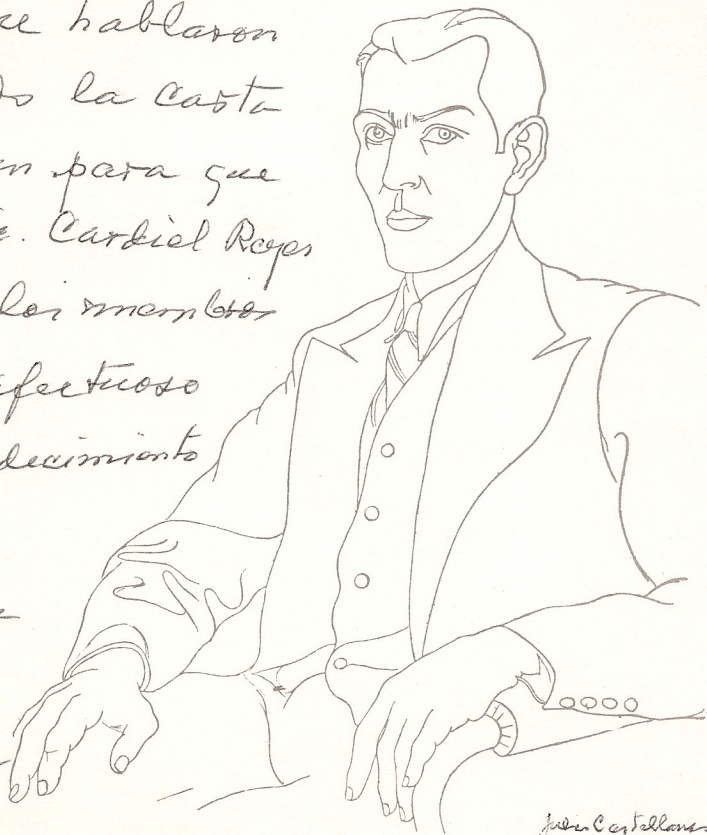 hablaron
la carta
para que
Cardiel Reyes
los miembros
afectuoso
decimiento
Julio Castellanos